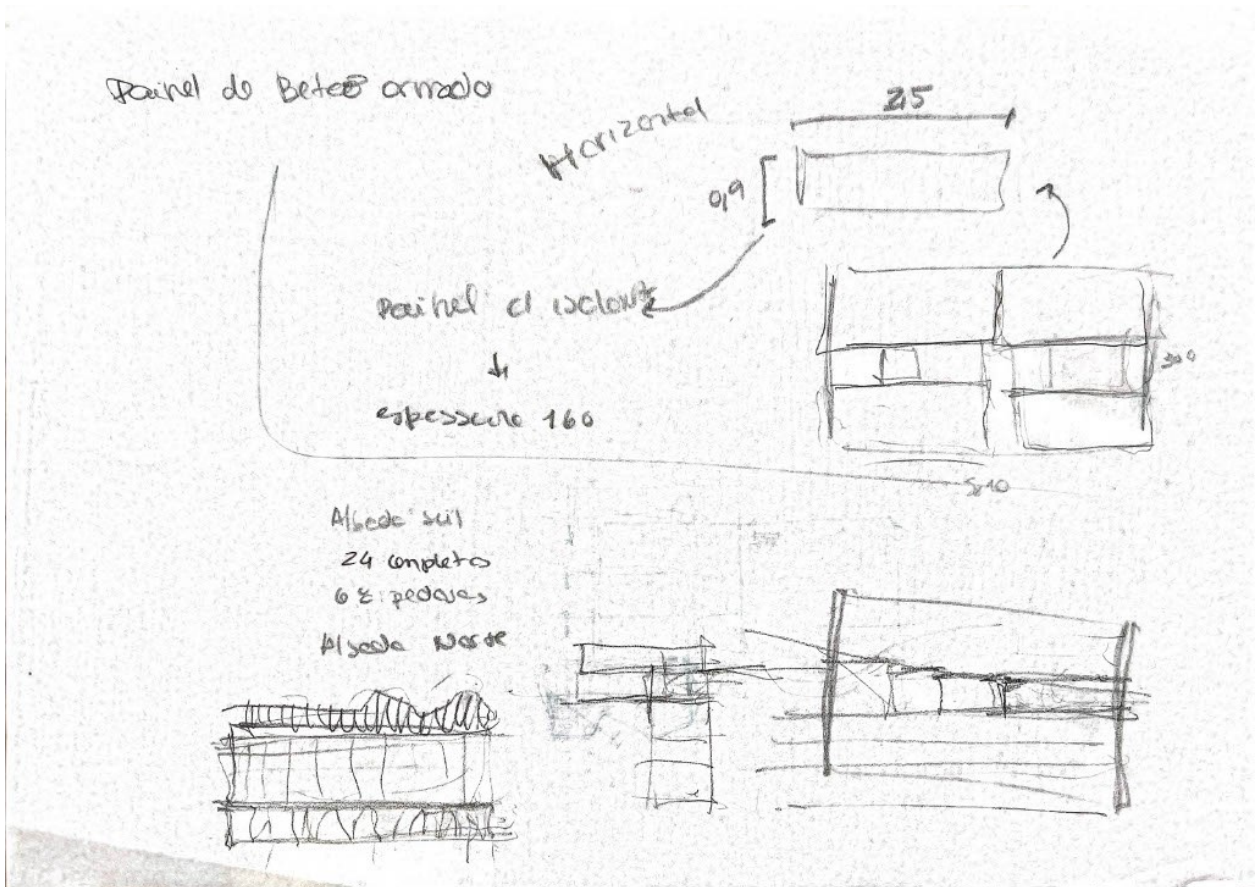 Painel de Betão armado
Horizontal
2,5
0,9
Painel c/ isolante
espessura 160
300
5,10
Alçado sul
24 completos
6 pedaços
Alçado Norte